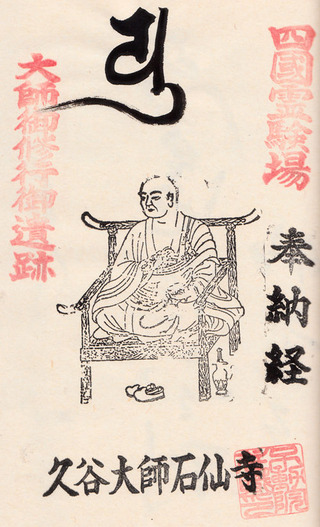 四國霊驗場
奉納経
大師御修行御遺跡
久谷大師石仙寺